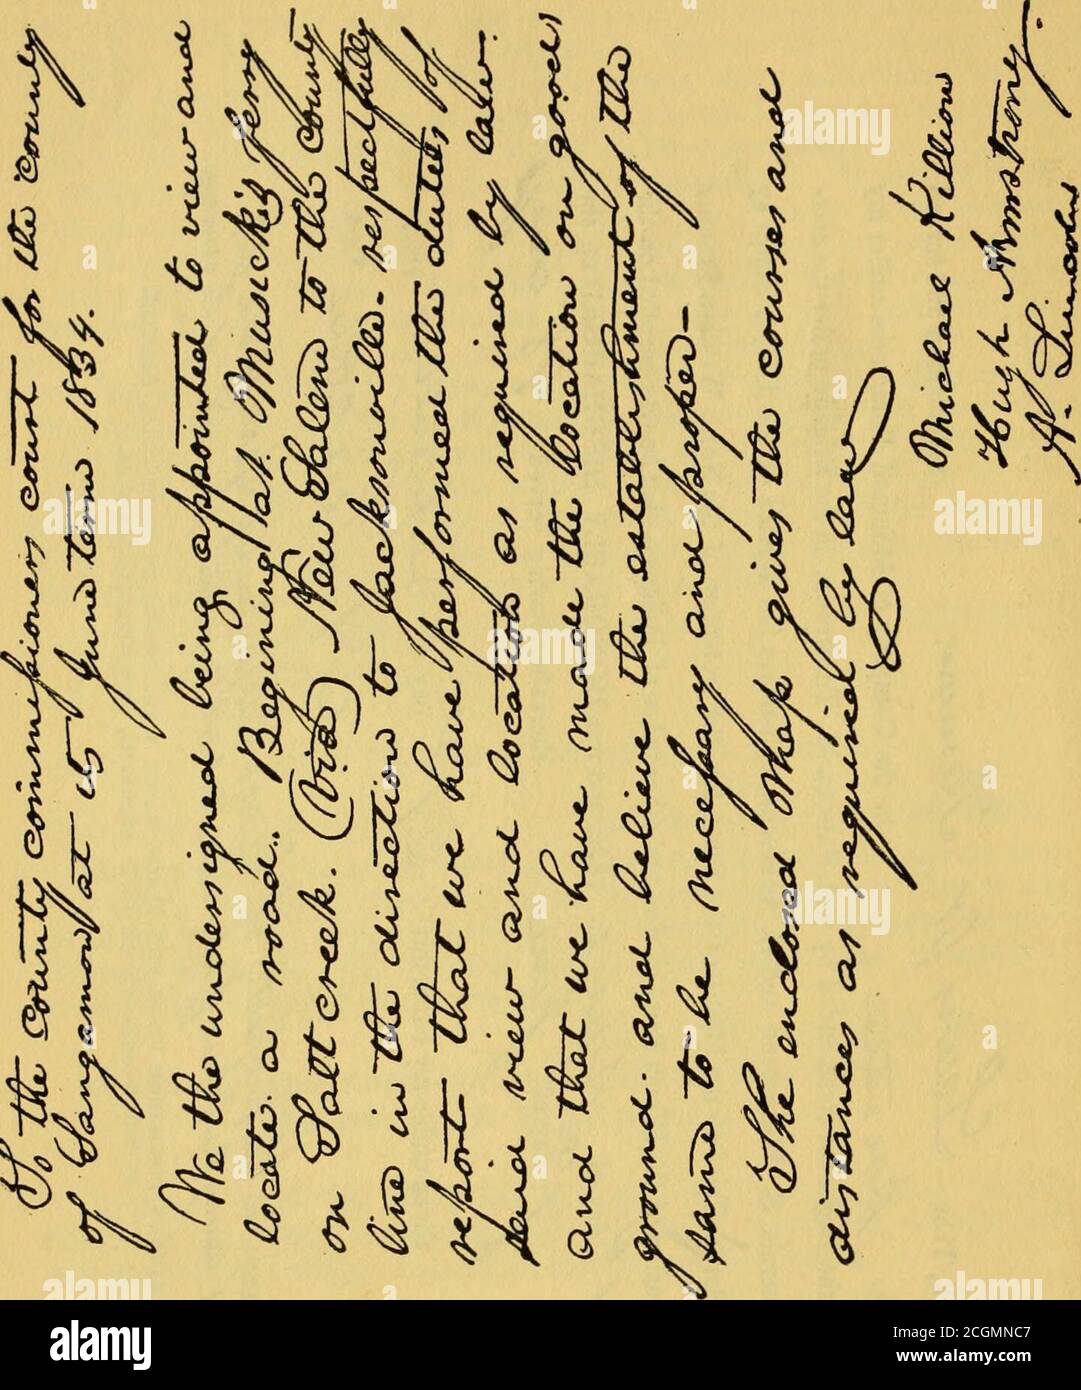 To the county commissioners court for the county
of Sangamon at its June term 1834.
We the undersigned being appointed to view and
locate a road. Begining at Musick's ferry
on Salt creek. (Via) New Salem to the county
line in the direction to Jacksonville - respectfully
report that we have performed the duties of
said view and location as required by law.
and that we have made the location on good
ground. and believe the establishment of the
same to be necessary and proper -
The enclosed map gives the courses and
distances as required by law
Michael Killion
Hugh Armstrong.
A. Lincoln
alamy
Image ID: 2CGMNC7
www.alamy.com